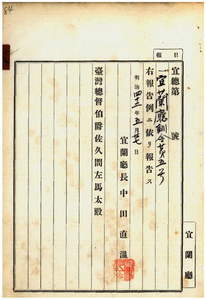 報
宜總第 號
一宜蘭廳訓令第五号
右報告例ニ依リ報告ス
明治四十三年五月廿七日
宜蘭廳長中田直溫
臺灣總督伯爵佐久間左馬太殿
宜蘭廳